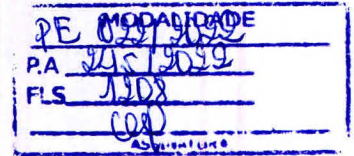 MODALIDADE
PE 022/2022
P.A 245/2022
FLS 1208
ASSINATURA